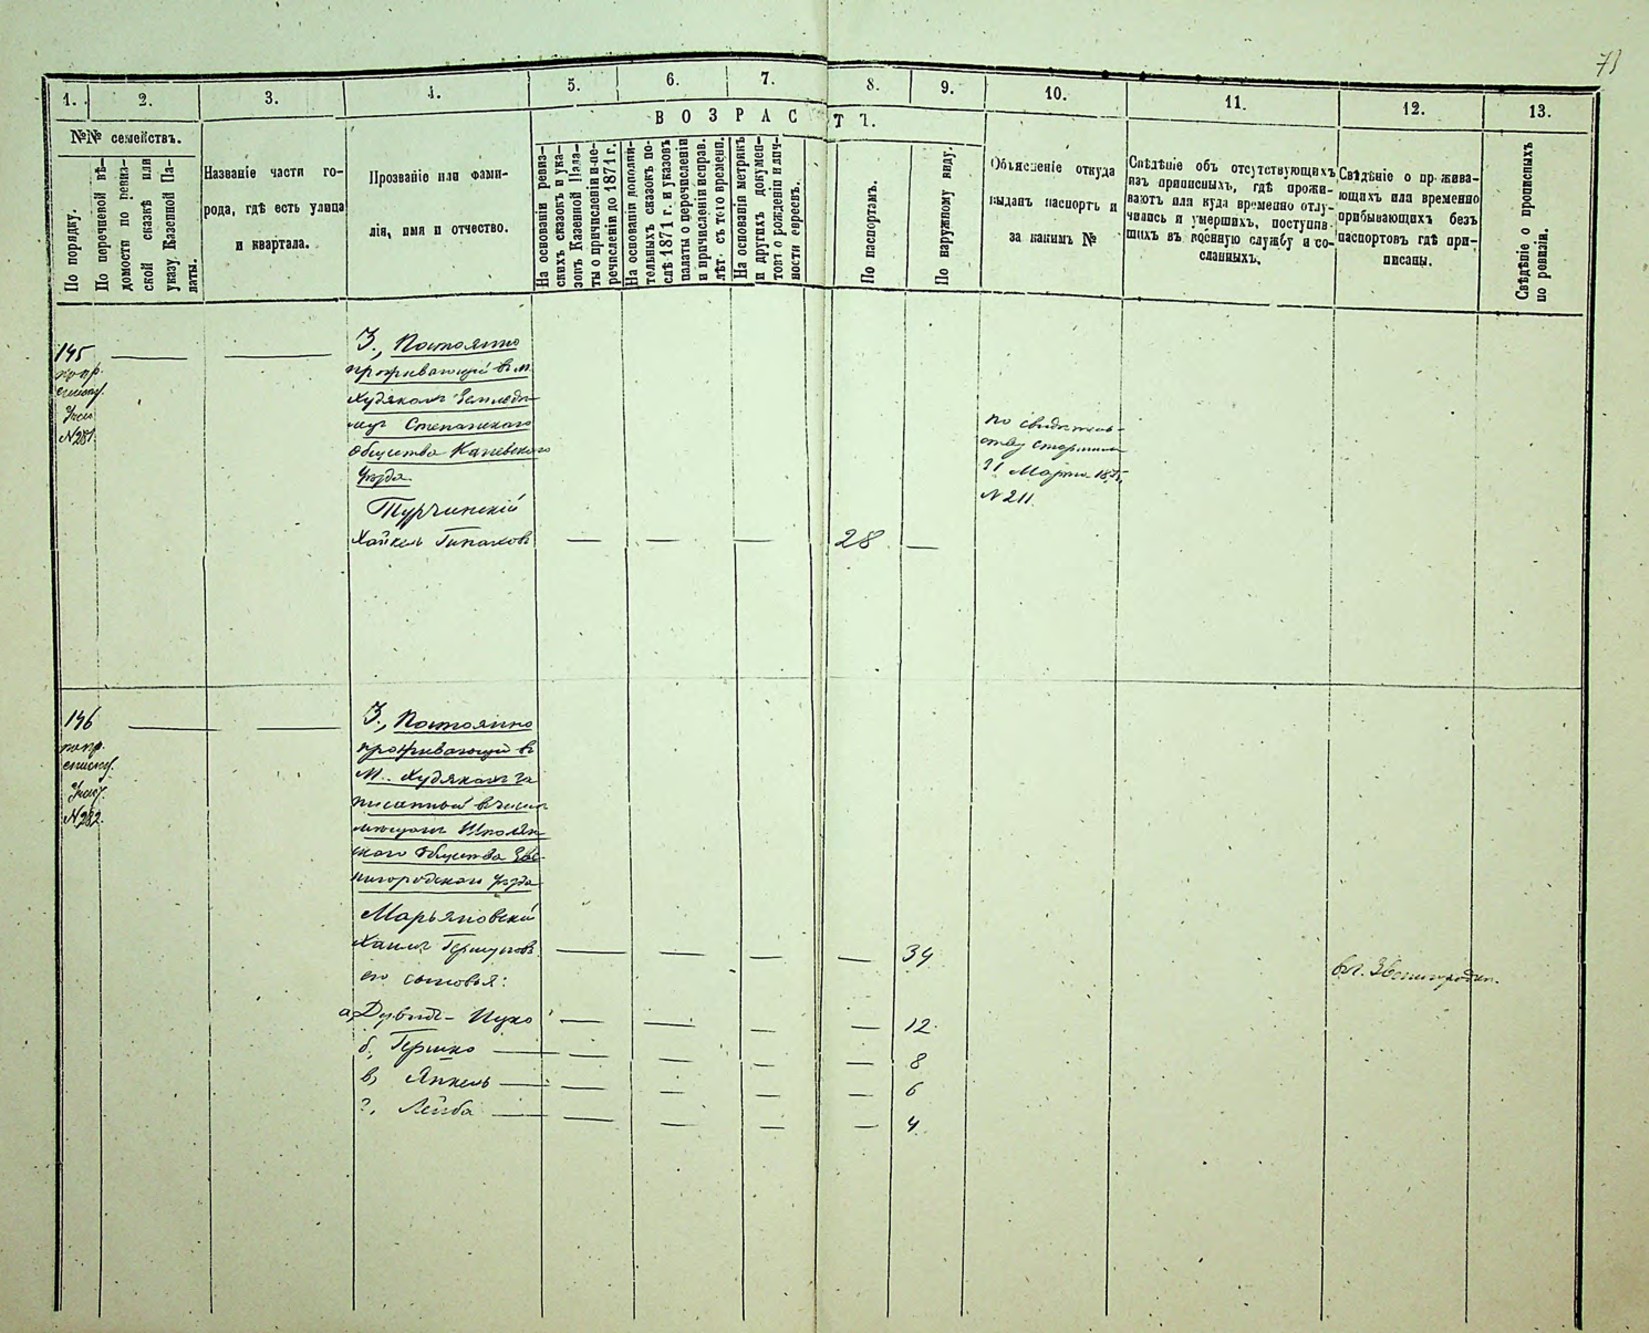 73
1. 2. 3. 4. 5. 6. 7. 8. 9. 10. 11. 12. 13.
№№ семействъ.
ВОЗРАСТЪ.
По порядку.
По перечневой вѣ-
домости по ревиз-
ской сказкѣ или
указу Казенной Па-
латы.
Названіе части го-
рода, гдѣ есть улица
и квартала.
Прозваніе или фами-
лія, имя и отчество.
На основаніи ревиз-
скихъ сказокъ и ука-
зовъ Казенной Пала-
ты о причисленіи и пе-
речисленіи до 1871 г.
На основаніи дополни-
тельныхъ сказокъ по-
слѣ 1871 г. и указовъ
палаты о перечисленіи
и причисленіи исправ.
лѣт. съ того времени.
На основаніи метрикъ
и другихъ докумен-
товъ о рожденіи и лич-
ности евреевъ.
По паспортамъ.
По наружному виду.
Объясненіе откуда
выданъ паспортъ и
за какимъ №
Свѣдѣніе объ отсутствующихъ
изъ приписныхъ, гдѣ прожи-
ваютъ или куда временно отлу-
чились и умершихъ, поступив-
шихъ въ военную службу и со-
сланныхъ.
Свѣдѣніе о прожива-
ющихъ или временно
прибывающихъ безъ
паспортовъ гдѣ при-
писаны.
Свѣдѣніе о прописныхъ
по ревизіи.
145
N 281
З., Постоянно
проживающій въ м.
Худякахъ
Общества Каневскаго
Уѣзда.
Турчинскій
28
31 Марта
N 211
146
списку.
N 282.
З., Постоянно
проживающій въ
М. Худякахъ за
писанный въ числѣ
мѣщанъ Шполян
скаго Общества Зве-
нигородскаго Уѣзда
Марьяновскій
Хаимъ Гершковъ
34
его сыновья:
а, Дувидъ – Ицко 12
б, Гершко 8
в, Янкель 6
г, Лейба 4